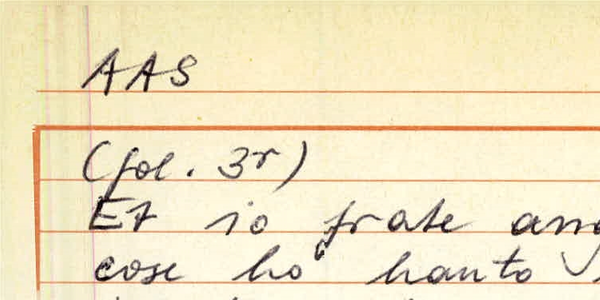 AAS
(fol. 3r)
Et io frate ang
cose ho hauto